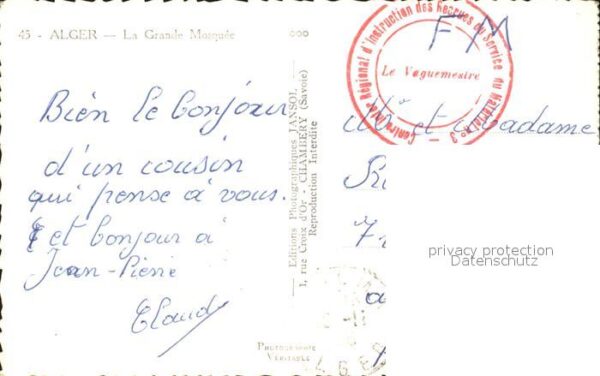 45 - ALGER — La Grande Mosquée
Bien le bonjour
d'un cousin
qui pense à vous.
et bonjour à
Jean-Pierre
Claudy
Editions Photographiques JANSOL
1, rue Croix d'Or - CHAMBÉRY (Savoie)
Reproduction Interdite
PHOTOGRAPHIE
VÉRITABLE
FM
Centre Régional d'Instruction des Recrues du Service du Matériel N° 3
Le Vaguemestre
Mr et Madame
privacy protection
Datenschutz